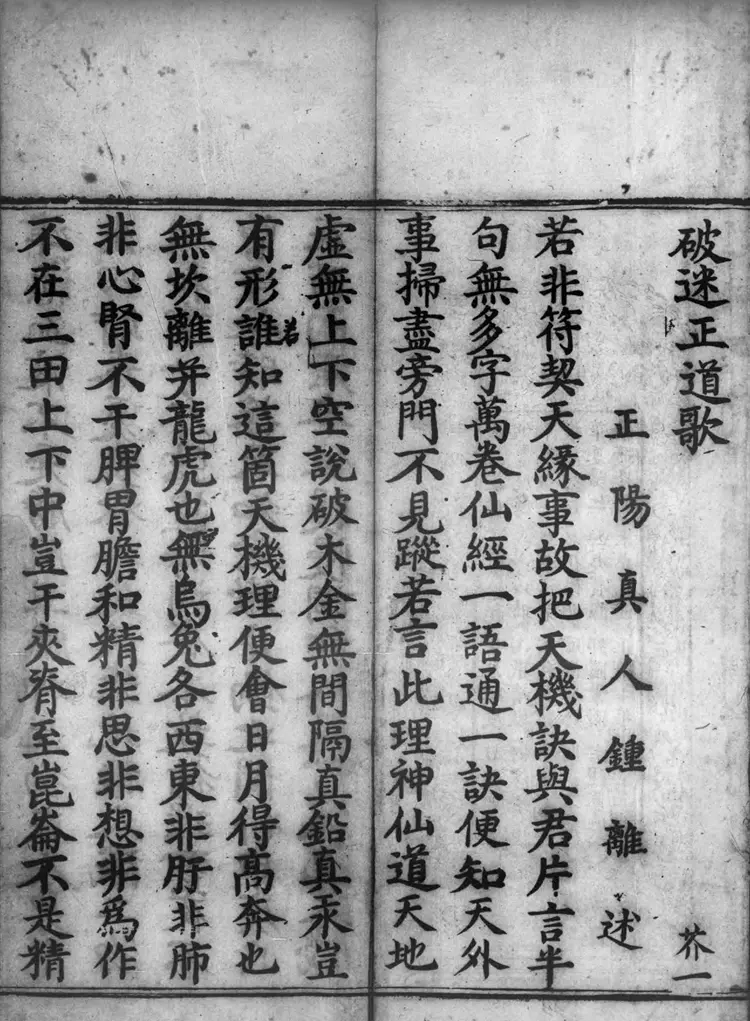 破迷正道歌
芥一
正陽真人鍾離述
若非符契天緣事故把天機訣與君片言半
句無多字萬卷仙經一語通一訣便知天外
事掃盡旁門不見蹤若言此理神仙道天地
虛無上下空說破木金無間隔真鉛真汞豈
有形誰若知這箇天機理便會日月得高奔也
無坎離并龍虎也無烏兔各西東非肝非肺
非心腎不干脾胃膽和精非思非想非為作
不在三田上下中豈干夾脊至崑崙不是精